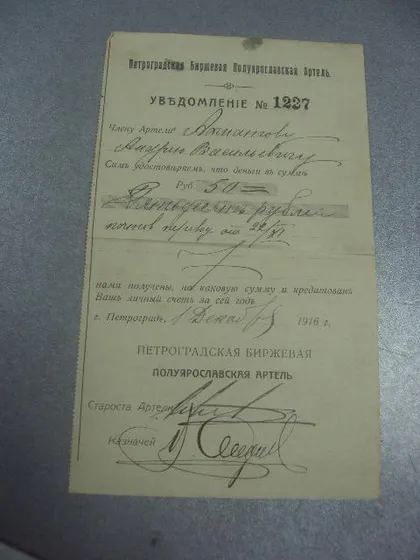 Петроградская Биржевая Полуярославская Артель.
УВѢДОМЛЕНІЕ № 1227
Члену Артели
Андрею Васильевичу
Симъ удостовѣряемъ, что деньги въ суммѣ
Руб. 50=
Пятьдесятъ рублей
22/XI
нами получены, на каковую сумму и кредитованъ
Вашъ личный счетъ за сей годъ
г. Петроградъ, 1 Декабря 1916 г.
ПЕТРОГРАДСКАЯ БИРЖЕВАЯ
ПОЛУЯРОСЛАВСКАЯ АРТЕЛЬ
Староста Артели
Казначей